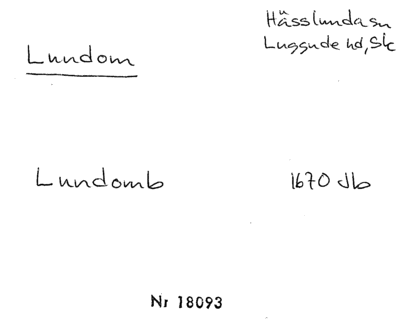 Hässlunda sn
Luggude hd, Sk
Lundom
Lundomb 1670 Jb
Nr 18093